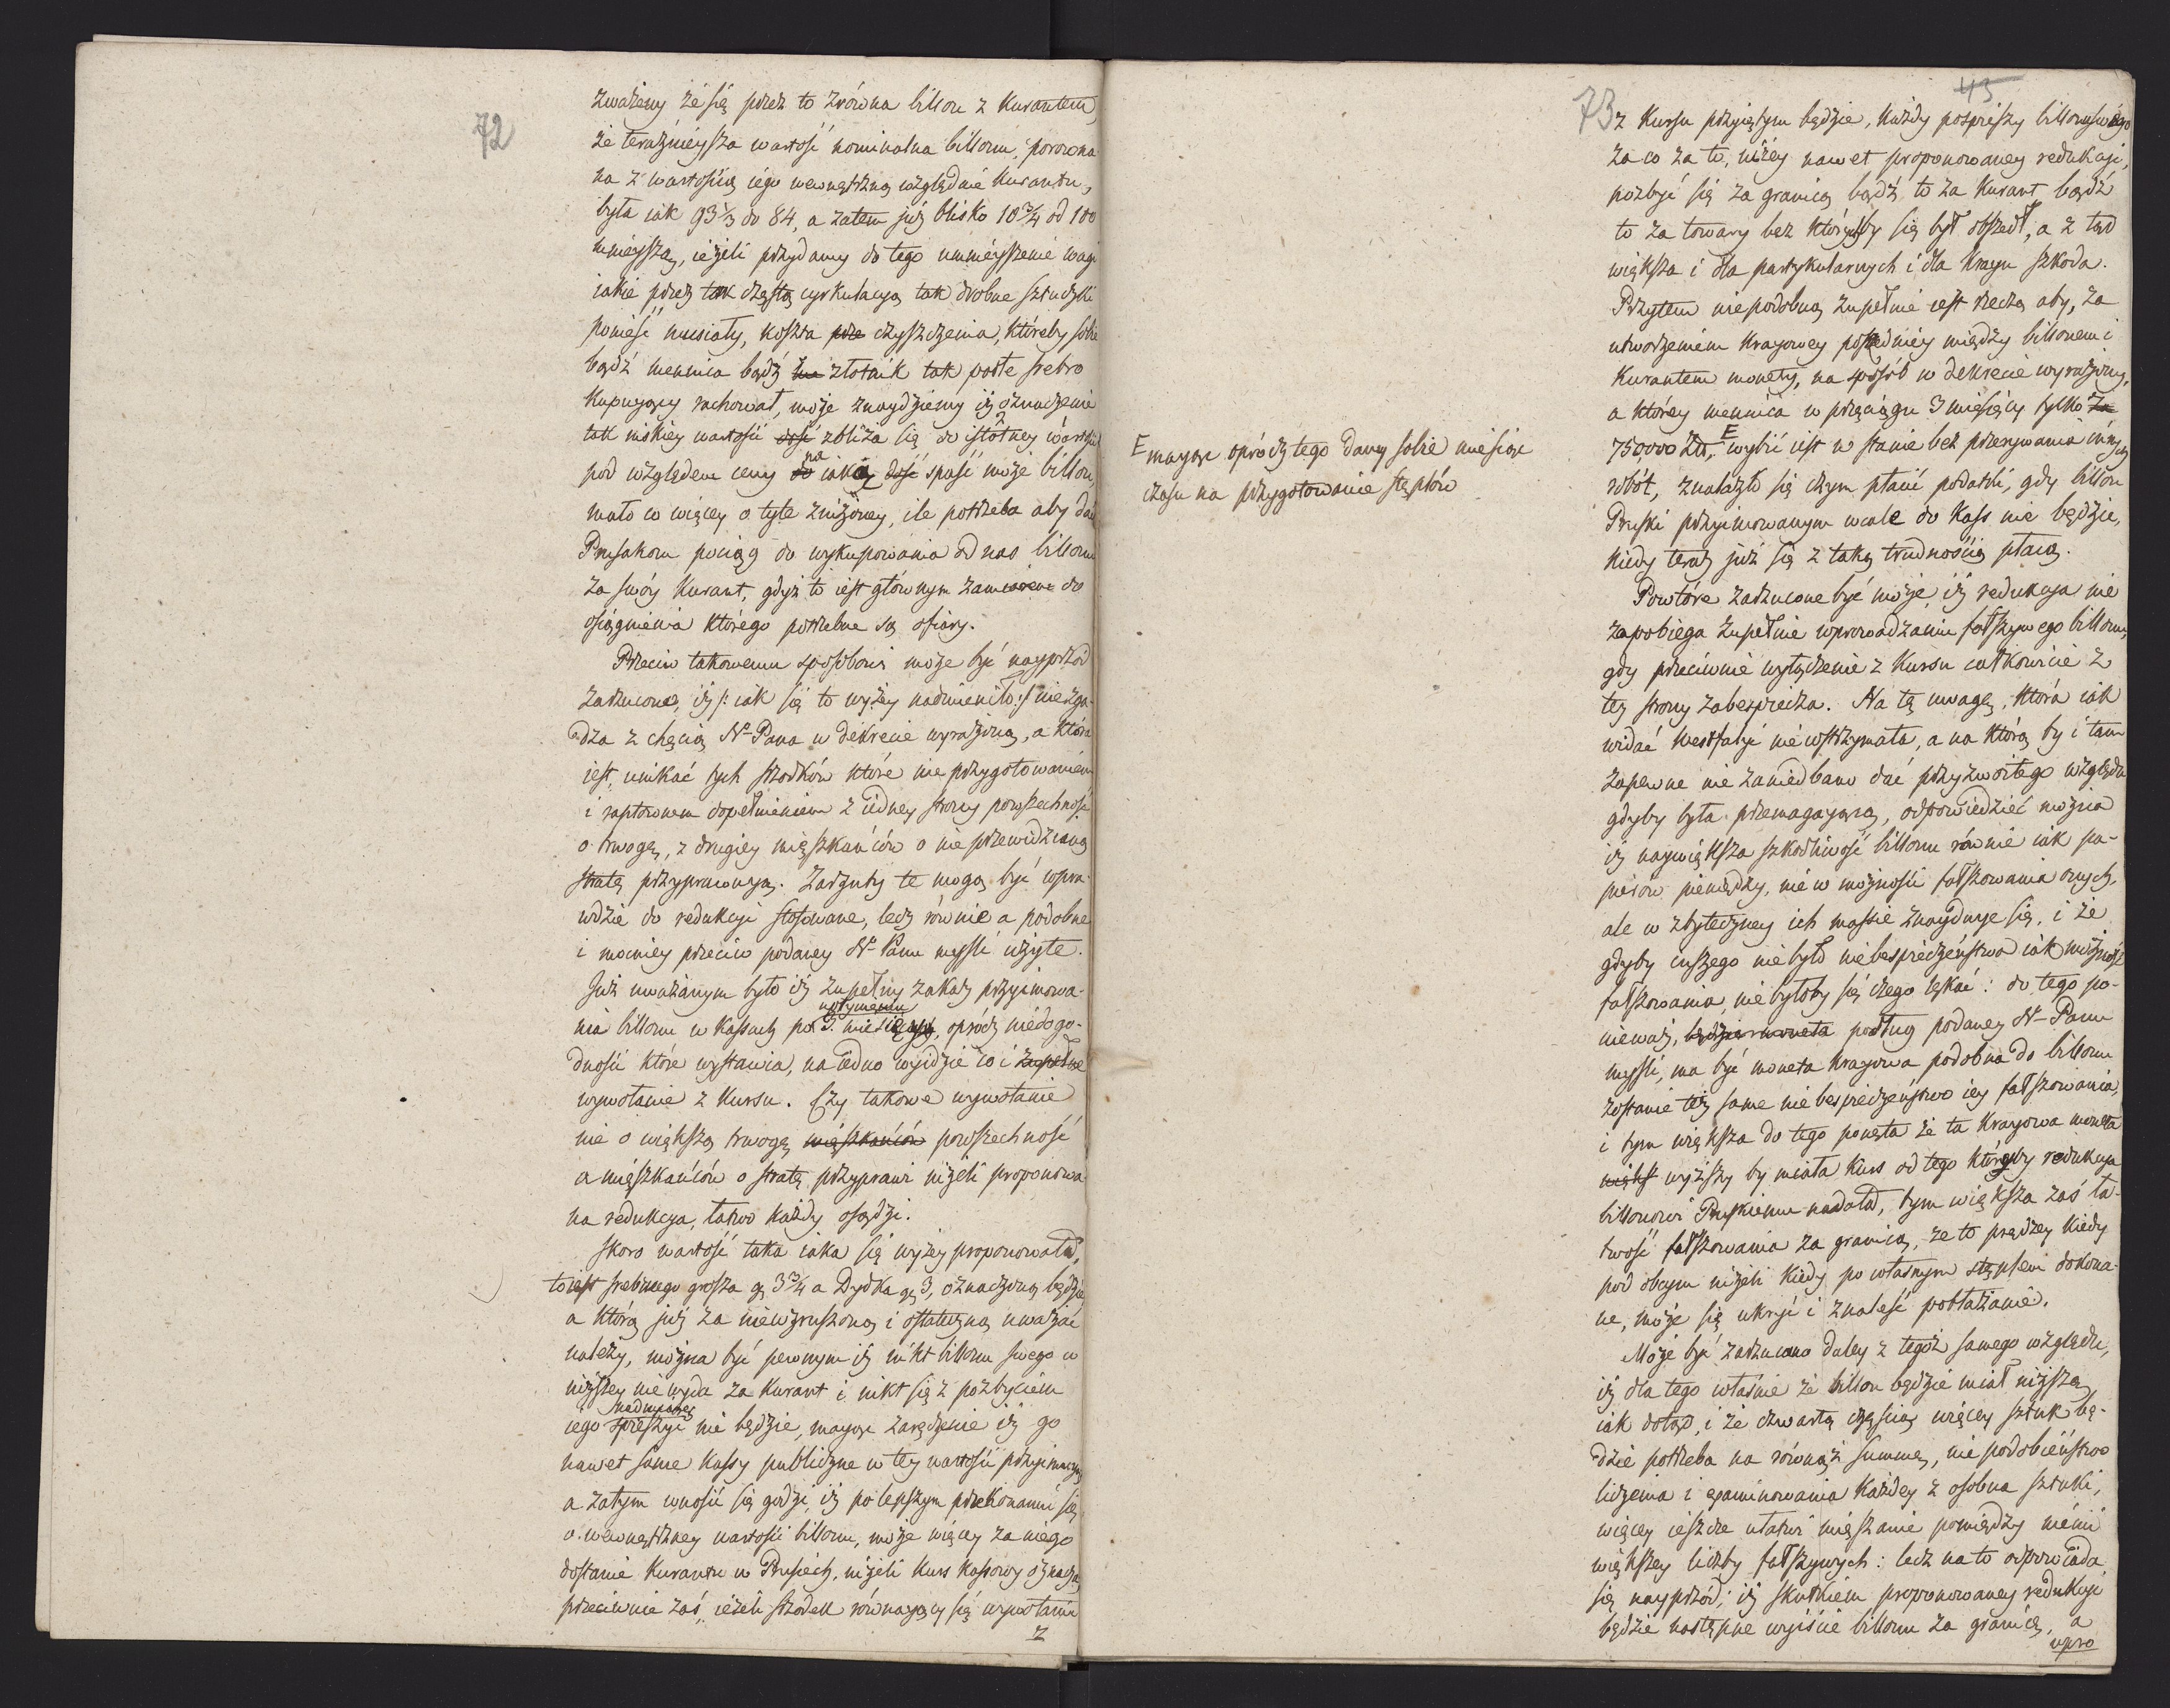 72
zważemy że się przez to zrówna billon z Kurantem,
że teraźnieysza wartość nominalna billonu, porówna-
na z wartością iego wewnętrzną względnie kurantu,
była iak 93⅓ do 84, a zatem już blisko 10¾ od 100
mnieyszą, ieżeli przydamy do tego umnieyszenie wagi
iakie przez tak częstą cyrkulacyą tak drobne sztuczki
ponieść musiały, koszta prze czyszczenia, któreby sobie
bądź mennica bądź złotnik tak podłe srebro
kupuyący rachował, może znaydziemy iż oznaczenie
tak niskiey wartości dość zbliża się do istotney wartości
pod względem ceny do na iaką dość spaść może billon,
mało co więcey o tyle zniżoney, ile potrzeba aby dać
Prusakom pociąg do wykupowania od nas billonu
za swóy Kurant, gdyż to iest głównym zamiarem do
osiągnienia którego potrzebne są ofiary.
Przeciw takowemu sposobowi może być nayprzód
zarzucone, iż /: iak się to wyżey nadmieniło :/ nie zga-
dza z chęcią N. Pana w dekrecie wyrażoną, a która
iest, unikać tych srzodków które nie przygotowaniem
i raptownem dopełnieniem z iedney strony powszechność
o trwogę, z drugiey mięszkańców o nie przewidzianą
stratę przyprawuyą. Zarzuty te mogą być wpra-
wdzie do redukcyi stosowane, lecz równie a podobne
i mocniey przeciw podaney N. Panu myśli użyte.
Już uważanym było iż zupełny zakaz przyimowa-
nia billonu w Kassach po upłynieniu 3. miesięcy, oprócz niedogo-
dności które wystawia, na iedno wyidzie co i zupełne
wywołanie z kursu. Czy takowe wywołanie
nie o większą trwogę mięszkańców powszechność
a mięszkańców o stratę przyprawi niżeli proponowa-
na redukcya, łatwo każdy osądzi.
Skoro wartość taka iaka się wyżey proponowała,
to iest srebrnego grosza gr 3¾ a Dydka gr 3, oznaczoną będzie,
a którą już za niewzruszoną i ostateczną uważać
należy, można być pewnym iż nikt billonu swego w
niższey nie wyda za Kurant i nikt się z pozbyciem
nadmiarę
iego spieszyć nie będzie, mayąc zaręczenie iż go
nawet same Kassy publiczne w tey wartości przyimuyą,
a zatym wnosić się godzi, iż po lepszym przekonaniu się
o wewnętrzney wartości billonu, może więcey za niego
dostanie Kurantu w Prusiech, niżeli kurs kassowy oznacza,
przeciwnie zaś, ieżeli srzodek równayący się wywołaniu
z
E mayąc oprócz tego dany sobie miesiąc
czasu na przygotowanie stęplów
45
73
z Kursu przyiętym będzie, każdy pospieszy billonu swego
za co za to, niżey nawet proponowaney redukcyi,
pozbyć się za granicą bądź to za Kurant bądź
to za towary bez którychby się był obszedł, a z tąd
większa i dla partykularnych i dla Kraju szkoda.
Przytem niepodobną zupełnie iest rzeczą aby, za
utworzeniem Kraiowey pośredniey między billonem i
Kurantem monety, na sposób w dekrecie wyrażony,
a którey mennica w przeciągu 3 miesięcy tylko za
750,000 Zł. E wybić iest w stanie bez przerywania innych
robót, znalazło się czym płacić podatki, gdy billon
Pruski przyimowanym wcale do Kass nie będzie,
kiedy teraz już się z taką trudnością płacą.
Powtóre zarzucone być może, iż redukcya nie
zapobiega zupełnie wprowadzaniu fałszywego billonu,
gdy przeciwnie wyłączenie z Kursu całkowicie z
tey strony zabezpiecza. Na tę uwagę, która iak
widać Westfalyi nie wstrzymała, a na którą by i tam
zapewne nie zaniedbano dać przyzwoitego względu
gdyby była przemagayącą, odpowiedzieć można
iż naywiększa szkodliwość billonu równie iak pa-
pierów pieniędzy, nie w możności fałszowania onych,
ale w zbyteczney ich massie znayduye się, i że
gdyby inszego nie było niebezpieczeństwa iak możność
fałszowania, nie byłoby się czego lękać: do tego po-
nieważ, będzie moneta podług podaney N. Panu
myśli, ma być moneta kraiowa podobna do billonu
zostanie też same niebezpieczeństwo iey fałszowania,
i tym większa do tego ponęta że ta krayowa moneta
więks wyższy by miała kurs od tego któryby redukcya
billonowi Pruskiemu nadała, tym większa zaś ła-
twość fałszowania za granicą, że to prędzey kiedy
pod obcym niżeli kiedy po własnym stęplem dokona-
ne, może się ukryć i znaleść pobłażanie.
Może być zarzucono daley z tegoż samego względu,
iż dla tego właśnie że billon będzie miał niższą
iak dotąd, i że czwartą częścią więcey sztuk bę-
dzie potrzeba na równąż summę, nie podobieństwo
liczenia i examinowania każdey z osobna sztuki,
więcey ieszcze ułatwi mięszanie pomiędzy niemi
większey liczby fałszywych: lecz na to odpowiada
się nayprzód; iż skutkiem proponowaney redukcyi
będzie nastąpne wyiście billonu za granicę, a
wpro